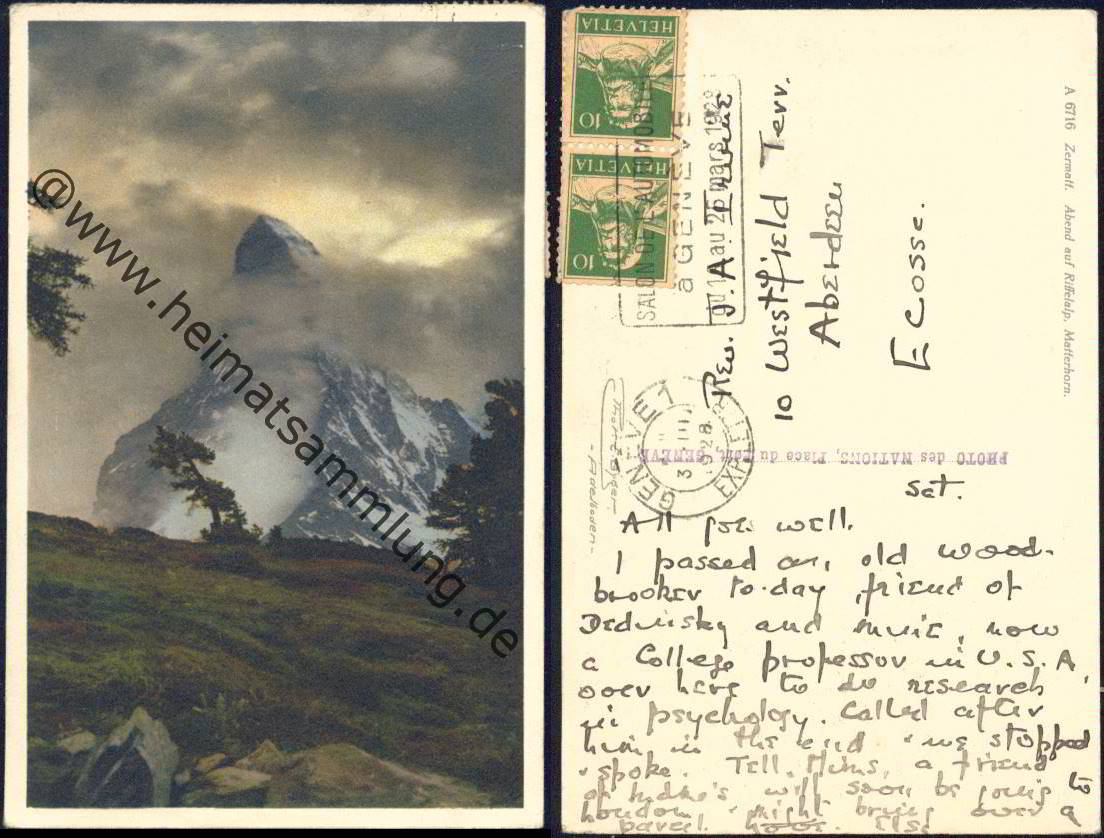 @www.heimatsammlung.de
HELVETIA
10
HELVETIA
10
SALON DE L'AUTOMOBILE
à GENÈVE
du 16 au 25 mars 1928
GENÈVE 1
3 III
1928
EXP. LETTR.
A 6716 Zermatt. Abend auf Riffelalp. Matterhorn.
Rev. J. A.
10 Westfield Terr.
Aberdeen
Ecosse.
- Adelboden -
PHOTO des NATIONS, Place du Port, GENÈVE
Sat.
All goes well.
I passed an old Wood-
brooker to-day, friend of
and mine, now
a College professor in U.S.A,
over here to do research
in psychology. Called after
him in the end & we stopped
& spoke. Tell Mums, a friend
of will soon be going to
London & might bring over a
parcel.